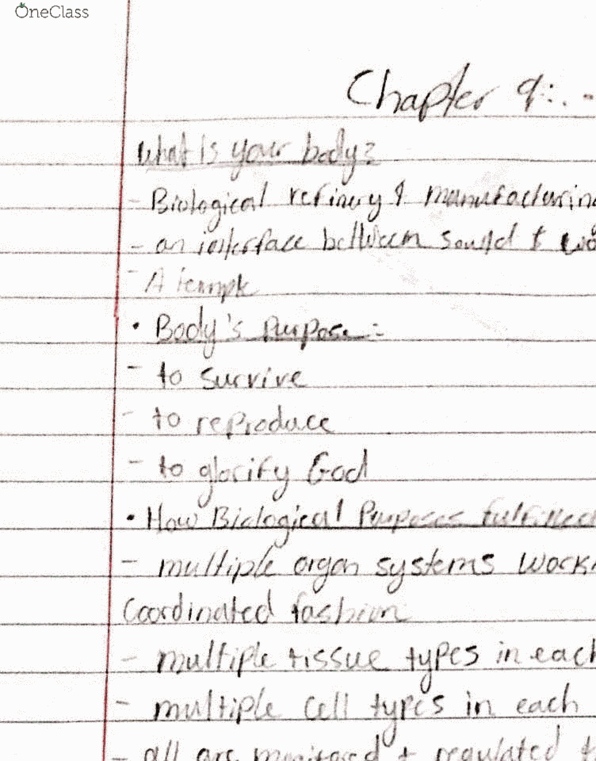 OneClass
Chapter 9:. -
What is your body?
- Biological refinery & manufacturing
- an interface between sound &
- A temple
• Body's Purpose:
- to survive
- to reproduce
- to glorify God
• How Biological Purposes fulfilled
- multiple organ systems work
Coordinated fashion
- multiple tissue types in each
- multiple cell types in each
- all are monitored + regulated